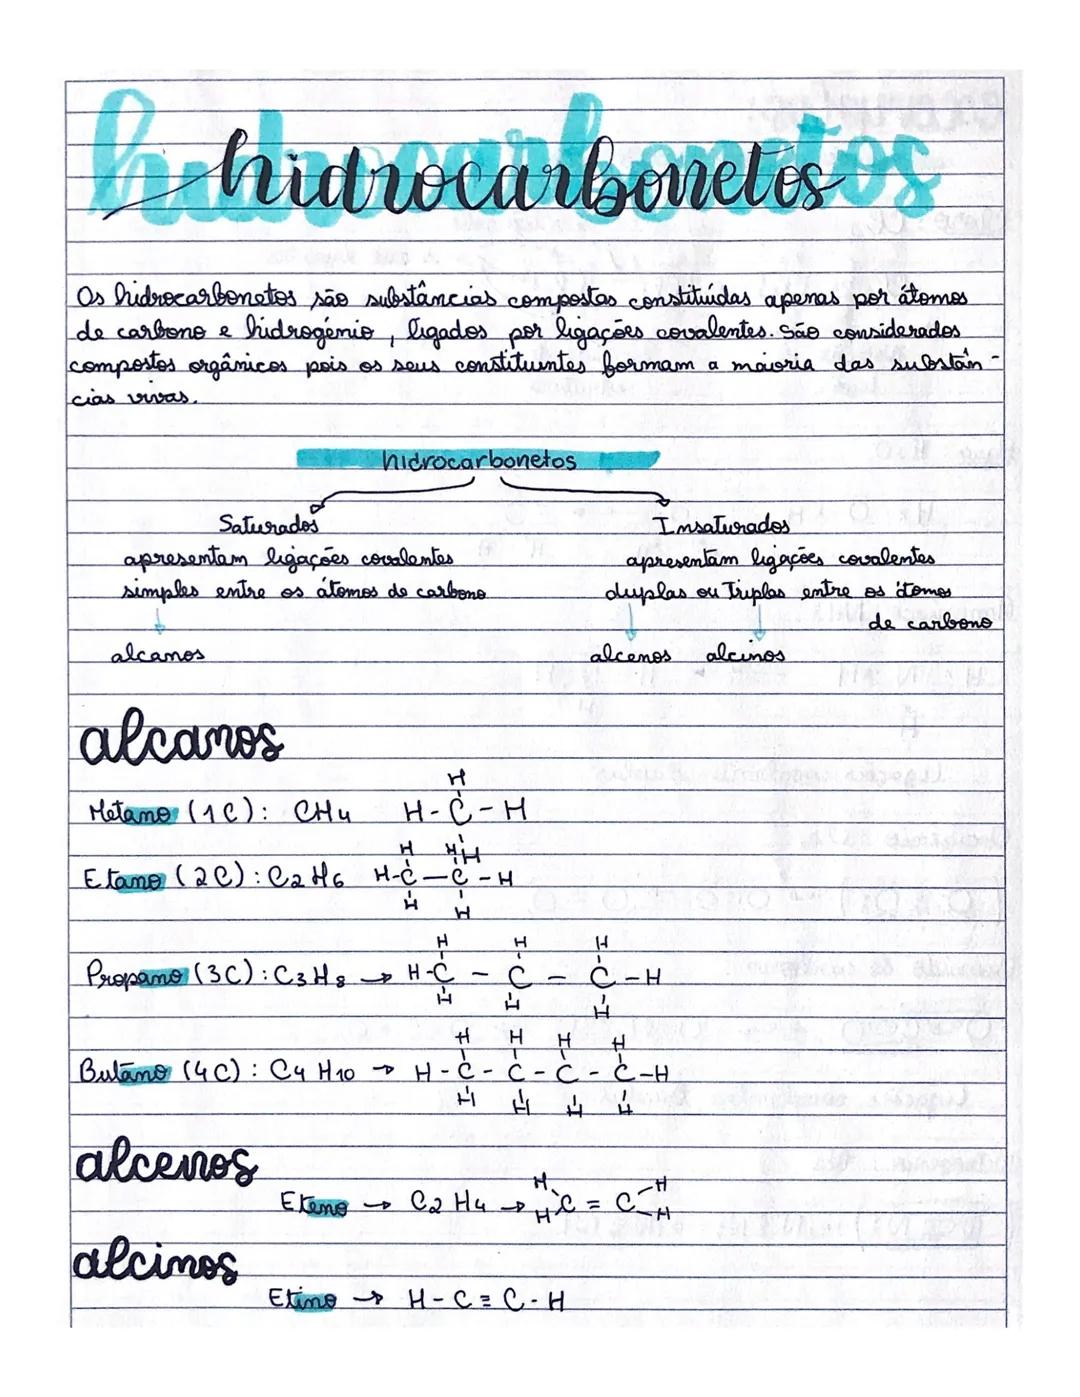 hidrocarbonetos
hidrocarbonetos
Os hidrocarbonetos são substâncias compostas constituídas apenas por átomos
de carbono e hidrogénio, ligados por ligações covalentes. São considerados
compostos orgânicos pois os seus constituintes formam a maioria das substân-
cias vivas.
hidrocarbonetos
Saturados Insaturados
apresentam ligações covalentes apresentam ligações covalentes
simples entre os átomos de carbono duplas ou Triplas entre os átomos
de carbono
alcanos alcenos alcinos
alcanos
H
Metano (1C): CH4 H-C-H
H
H H
Etano (2C): C2H6 H-C-C-H
H H
H H H
Propano (3C): C3H8 → H-C-C-C-H
H H H
H H H H
Butano (4C): C4H10 → H-C-C-C-C-H
H H H H
alcenos
H H
Eteno → C2H4 → C=C
H H
alcinos
Etino → H-C≡C-H